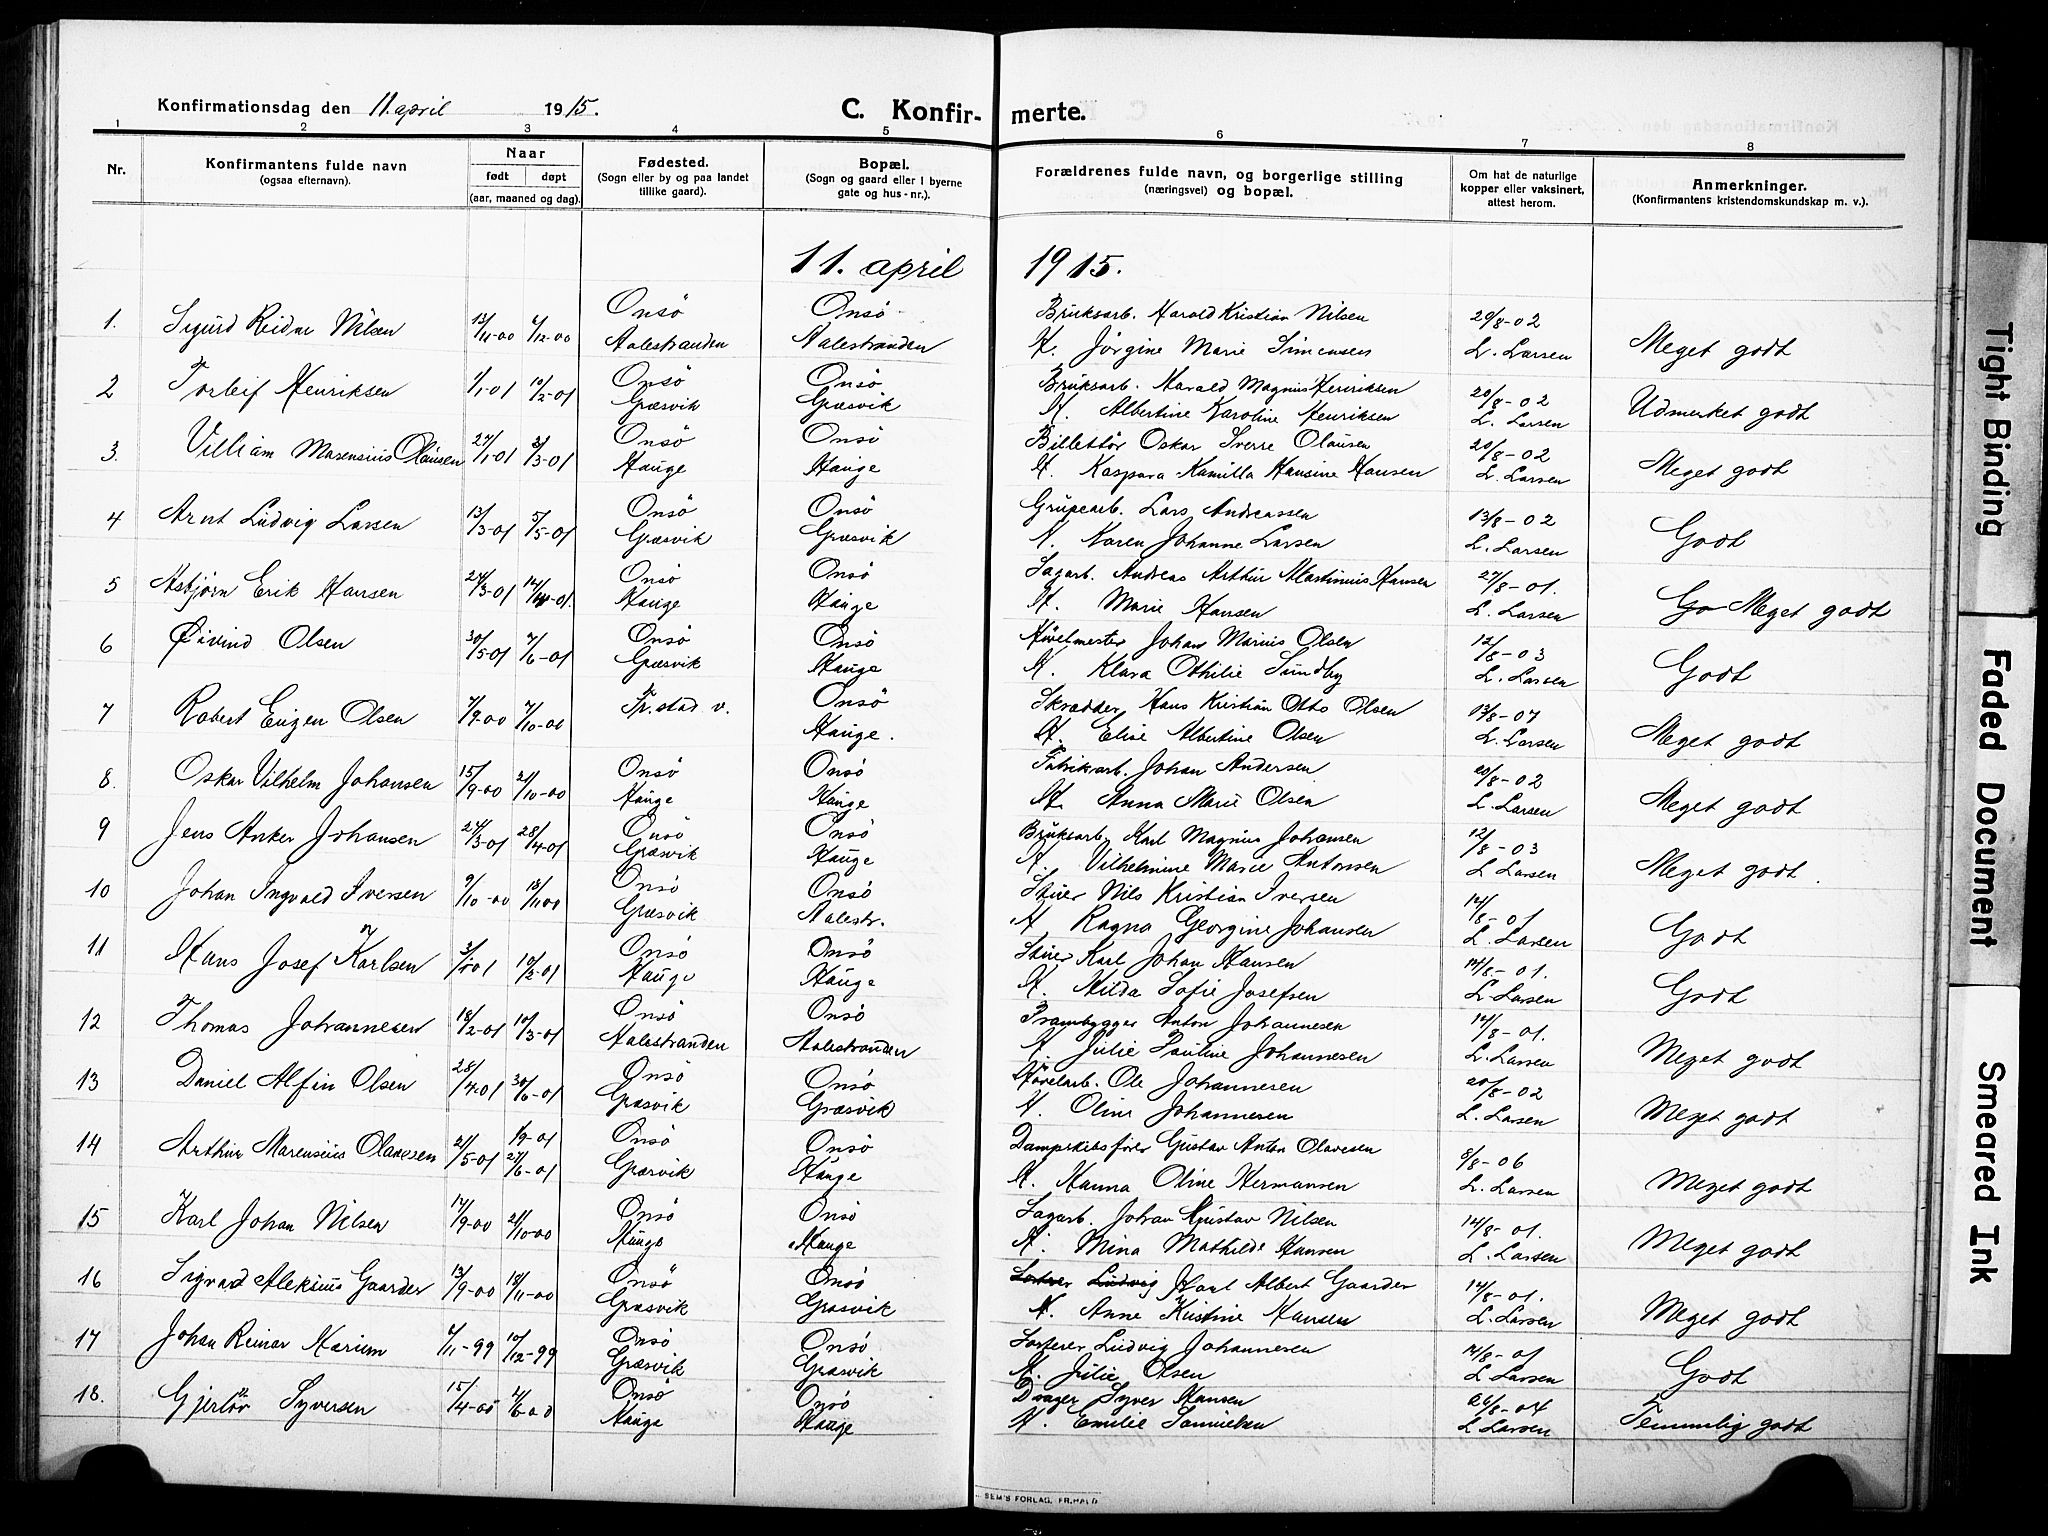 Konfirmationsdag den 11. april 1915.
C. Konfirmerte.
1 2 3 4 5 6 7 8
Nr.
Konfirmantens fulde navn
(ogsaa efternavn).
Naar
født døpt
(aar, maaned og dag).
Fødested.
(Sogn eller by og paa landet
tillike gaard).
Bopæl.
(Sogn og gaard eller i byerne
gate og hus-nr.).
Forældrenes fulde navn, og borgerlige stilling
(næringsvei) og bopæl.
Om hat de naturlige
kopper eller vaksinert,
attest herom.
Anmerkninger.
(Konfirmantens kristendomskundskap m. v.).
11. april 1915.
1. Sigurd Reidar Nilsen 13/11-00 6/12-00 Onsö Onsö Bruksarb. Harald Kristian Nilsen 29/8-02
Aalestranden Aalestranden H. Jörgine Marie Simensen L. Larsen Meget godt
2 Torleif Henriksen 1/1-01 10/2-01 Onsö Onsö Bruksarb. Harald Magnus Henriksen 20/8-02
Græsvik Græsvik H. Albertine Karoline Henriksen L. Larsen Udmerket godt
3. Villiam Marensius Olausen 27/1-01 3/3-01 Onsö Onsö Billettör Oskar Sverre Olausen 20/8-02
Hauge Hauge H. Kaspara Kamilla Hansine Hansen L. Larsen Meget godt
4 Arnt Ludvig Larsen 13/3-01 5/5-01 Onsö Onsö Grubearb. Lars Andreassen 13/8-02
Græsvik Græsvik H. Karen Johanne Larsen L. Larsen Godt
5 Asbjörn Erik Hansen 24/3-01 14/4-01. Onsö Onsö Sagarb. Andreas Arthur Martinius Hansen 27/8-01.
Hauge Hauge H. Marie Hansen L. Larsen Go Meget godt
6 Øivind Olsen 30/5-01 7/6-01 Onsö Onsö Hövelmester Johan Marius Olsen 12/8-03
Græsvik Hauge H. Klara Othilie Sundby L. Larsen Godt
7 Robert Eugen Olsen 7/9-00 7/10-00 Fr.stad v. Onsö Skrædder Hans Kristian Otto Olsen 13/8-07
Hauge. H. Elise Albertine Olsen L. Larsen Meget godt
8. Oskar Vilhelm Johansen 15/9-00 21/10-00 Onsö Onsö Fabrikarb. Johan Andersen 20/8-02
Hauge Hauge H. Anna Marie Olsen L. Larsen Meget godt
9 Jens Anker Johansen 24/3-01 28/4-01 Onsö Onsö Bruksarb. Karl Magnus Johansen 12/8-03
Græsvik Hauge H. Vilhelmine Marie Antonsen L Larsen Meget godt.
10 Johan Ingvald Iversen 9/10-00 18/11 00 Onsö Onsö Stuer Nils Kristian Iversen 14/8-01
Græsvik Aalestr. H Ragna Georgine Johansen L. Larsen Godt
11 Hans Josef Karlsen 3/1-01 10/2-01 Onsö Onsö Stuer Karl Johan Hansen 14/8-01.
Hauge Hauge H. Hilda Sofie Josefsen L. Larsen Godt
12 Thomas Johannesen 18/2-01 10/3-01 Onsö Onsö Prambygger Anton Johannesen 14/8-01.
Aalestranden Aalestranden H Julie Pauline Johannesen L. Larsen Meget godt
13 Daniel Alfin Olsen 28/4-01 30/6-01 Onsö Onsö Hövelarb. Ole Johannesen 20/8-02
Græsvik Græsvik H. Oline Johannesen L. Larsen Meget godt
14 Arthur Marensius Olavesen 21/5-01 1/9-01 Onsö Onsö Dampskibsförer Gustav Anton Olavesen 8/8-06
27/6-01 Græsvik Hauge H. Hanna Oline Hermansen L. Larsen Meget godt
15 Karl Johan Nilsen 17/9-00 21/10-00 Onsö Onsö Sagarb. Johan Gustav Nilsen 14/8-01.
Hauge Hauge H. Mina Mathilde Hansen L. Larsen Meget godt
16 Sigvard Aleksius Gaarder 13/9-00 18/11-00 Onsö Onsö Sorterer Ludvig Karl Albert Gaarder 14/8-01.
Græsvik Græsvik H. Anne Kristine Hansen L. Larsen Meget godt
17 Johan Reinar Marium 6/11-99 10/12-99 Onsö Onsö Sorterer Ludvig Johannesen 14/8-01
Græsvik Græsvik H. Julie Olsen L Larsen Godt
18. Gjerlöv Syversen 15/4-00 4/6-00 Onsö Onsö Drager Syver Hansen 26/8-04
Hauge Hauge H. Emilie Samuelsen L Larsen Temmelig godt
SEM'S FORLAG, FR.HALD
Tight Binding
Faded Document
Smeared Ink